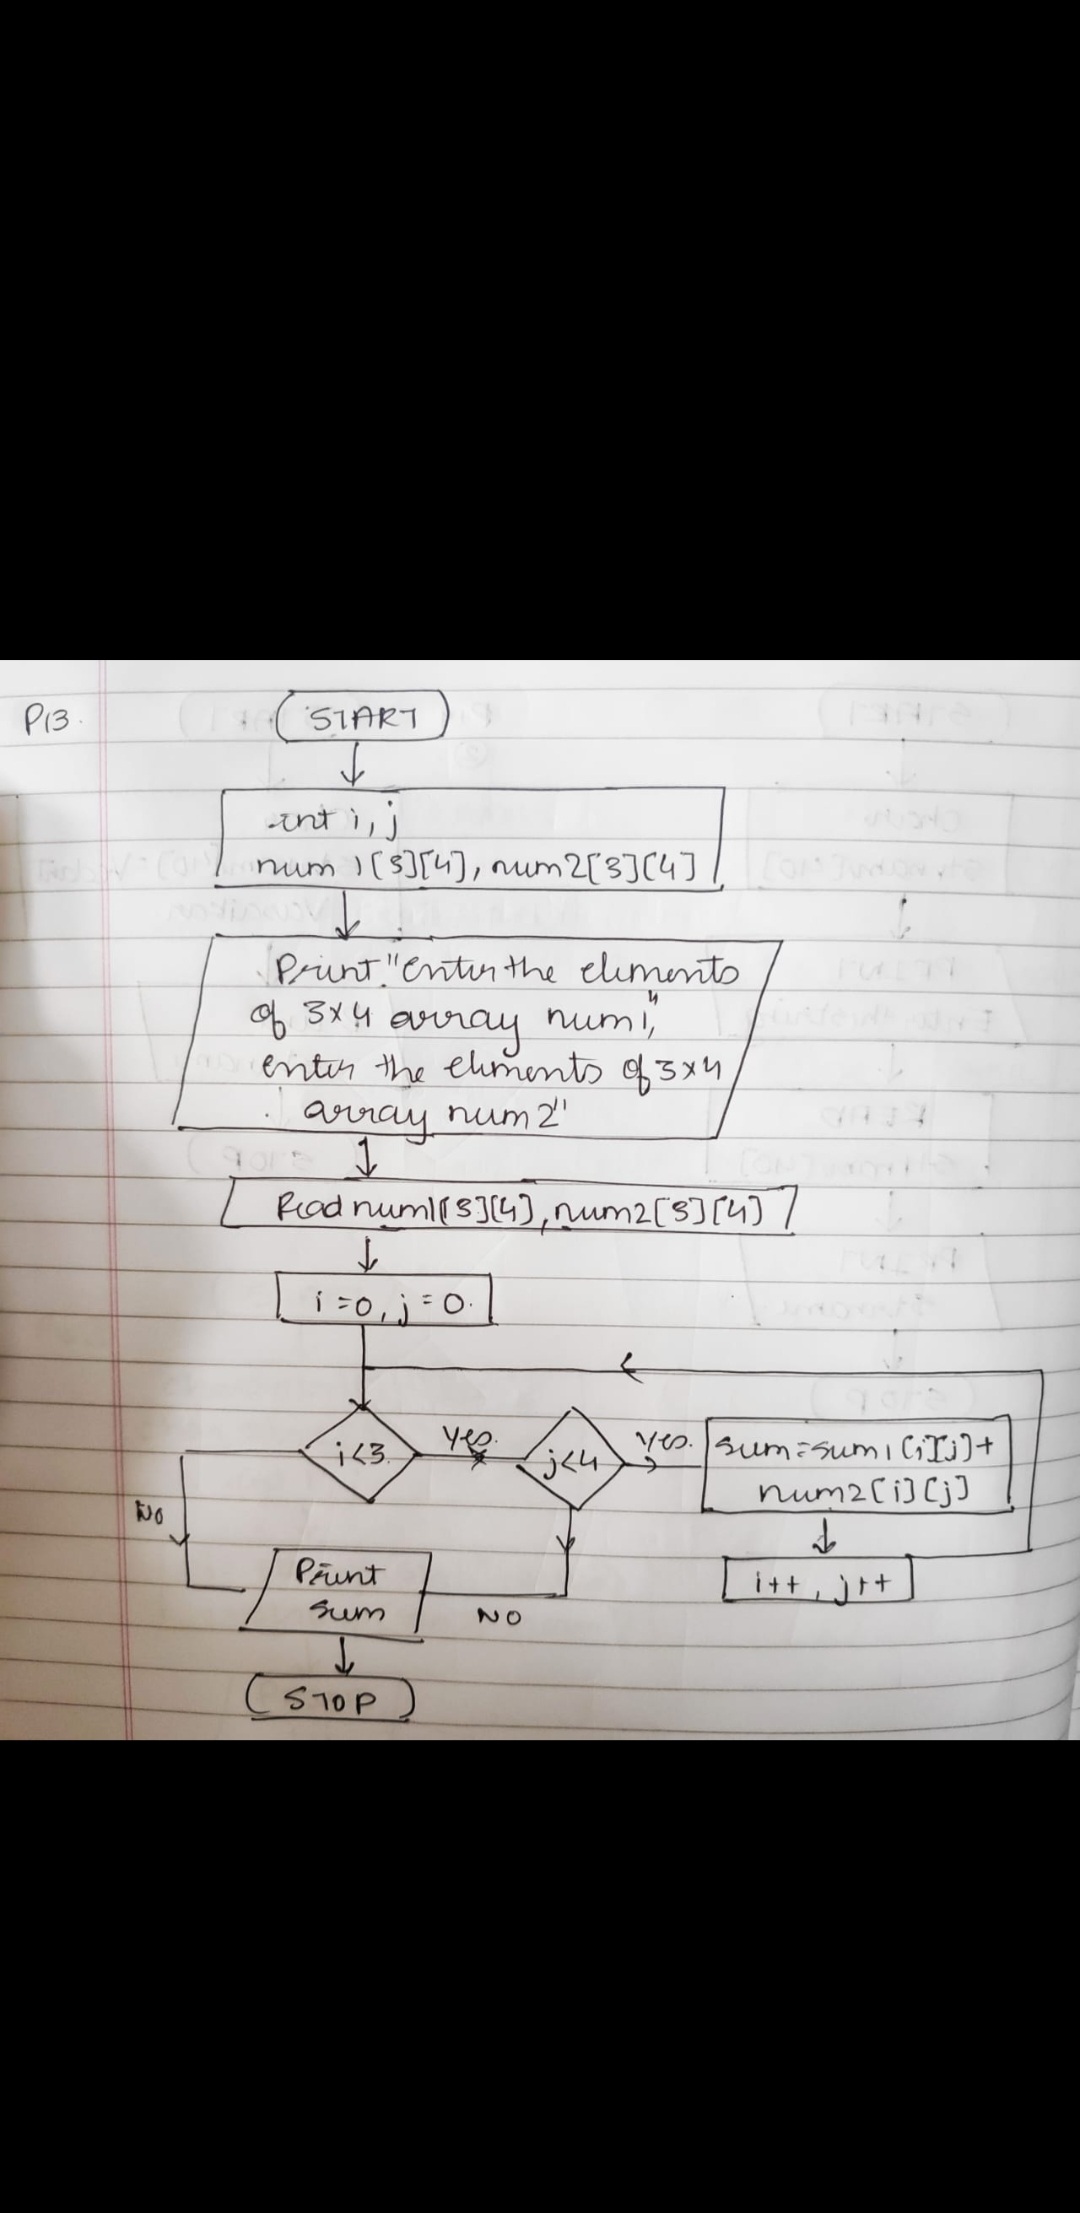 P13.
START
int i, j
num1[3][4], num2[3][4]
Print "Enter the elements
of 3x4 array num1",
enter the elements of 3x4
array num2"
Read num1[3][4], num2[3][4]
i=0, j=0.
i<3
Yes.
j<4
Yes.
sum=sum1[i][j]+
num2[i][j]
No
i++, j++
Print
sum
NO
STOP